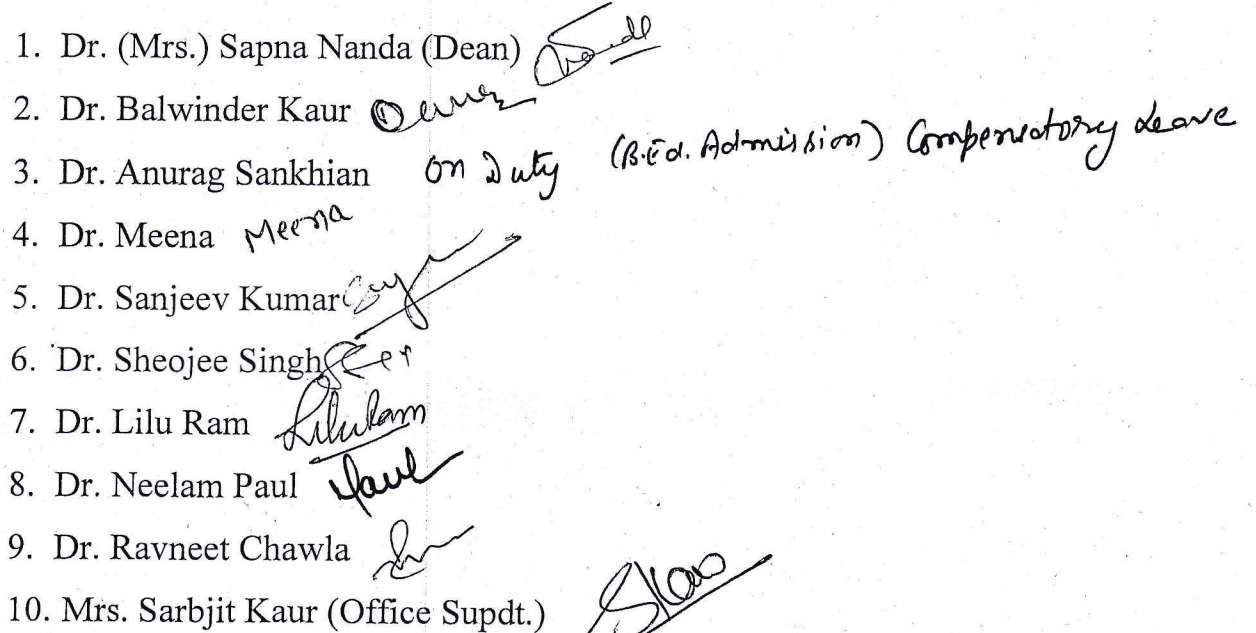 1. Dr. (Mrs.) Sapna Nanda (Dean)
2. Dr. Balwinder Kaur
3. Dr. Anurag Sankhian On Duty (B.Ed. Admission) Compensatory Leave
4. Dr. Meena Meena
5. Dr. Sanjeev Kumar
6. Dr. Sheojee Singh
7. Dr. Lilu Ram Lilu Ram
8. Dr. Neelam Paul Paul
9. Dr. Ravneet Chawla
10. Mrs. Sarbjit Kaur (Office Supdt.) SKaur